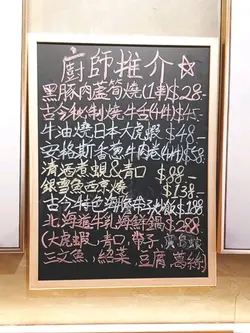 廚師推介☆
黑豚肉蘆筍燒(1串)$28.-
古今秘制燒牛舌(4件)$45.-
牛油燒日本大虎蝦 $48.-
安格斯香蔥牛肉卷(4件)$58.-
清酒煮蜆&青口 $98.-
銀雪魚西京燒 $138.-
古今特色海膽帶子炒飯$188
北海道牛乳海鮮鍋 $288
(大虎蝦,青口,帶子,
三文魚,紹菜,豆腐,葛絲)